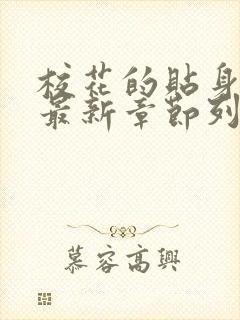 校花的貼身
最新章節列
慕容高興